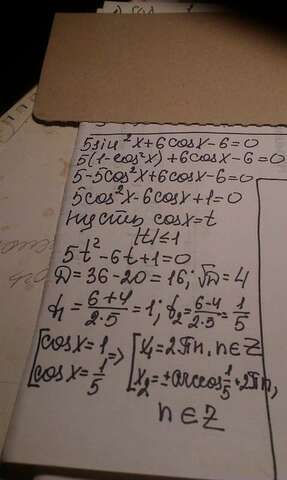 5sin²x+6cosx-6=0
5(1-cos²x)+6cosx-6=0
5-5cos²x+6cosx-6=0
5cos²x-6cosx+1=0
Пусть cosx=t
|t|≤1
5t²-6t+1=0
D=36-20=16; √D=4
t₁=(6+4)/(2·5)=1; t₂=(6-4)/(2·5)=1/5
[cosx=1, => [x₁=2πn, n∈Z
[cosx=1/5 [x₂=±arccos 1/5+2πn,
n∈Z